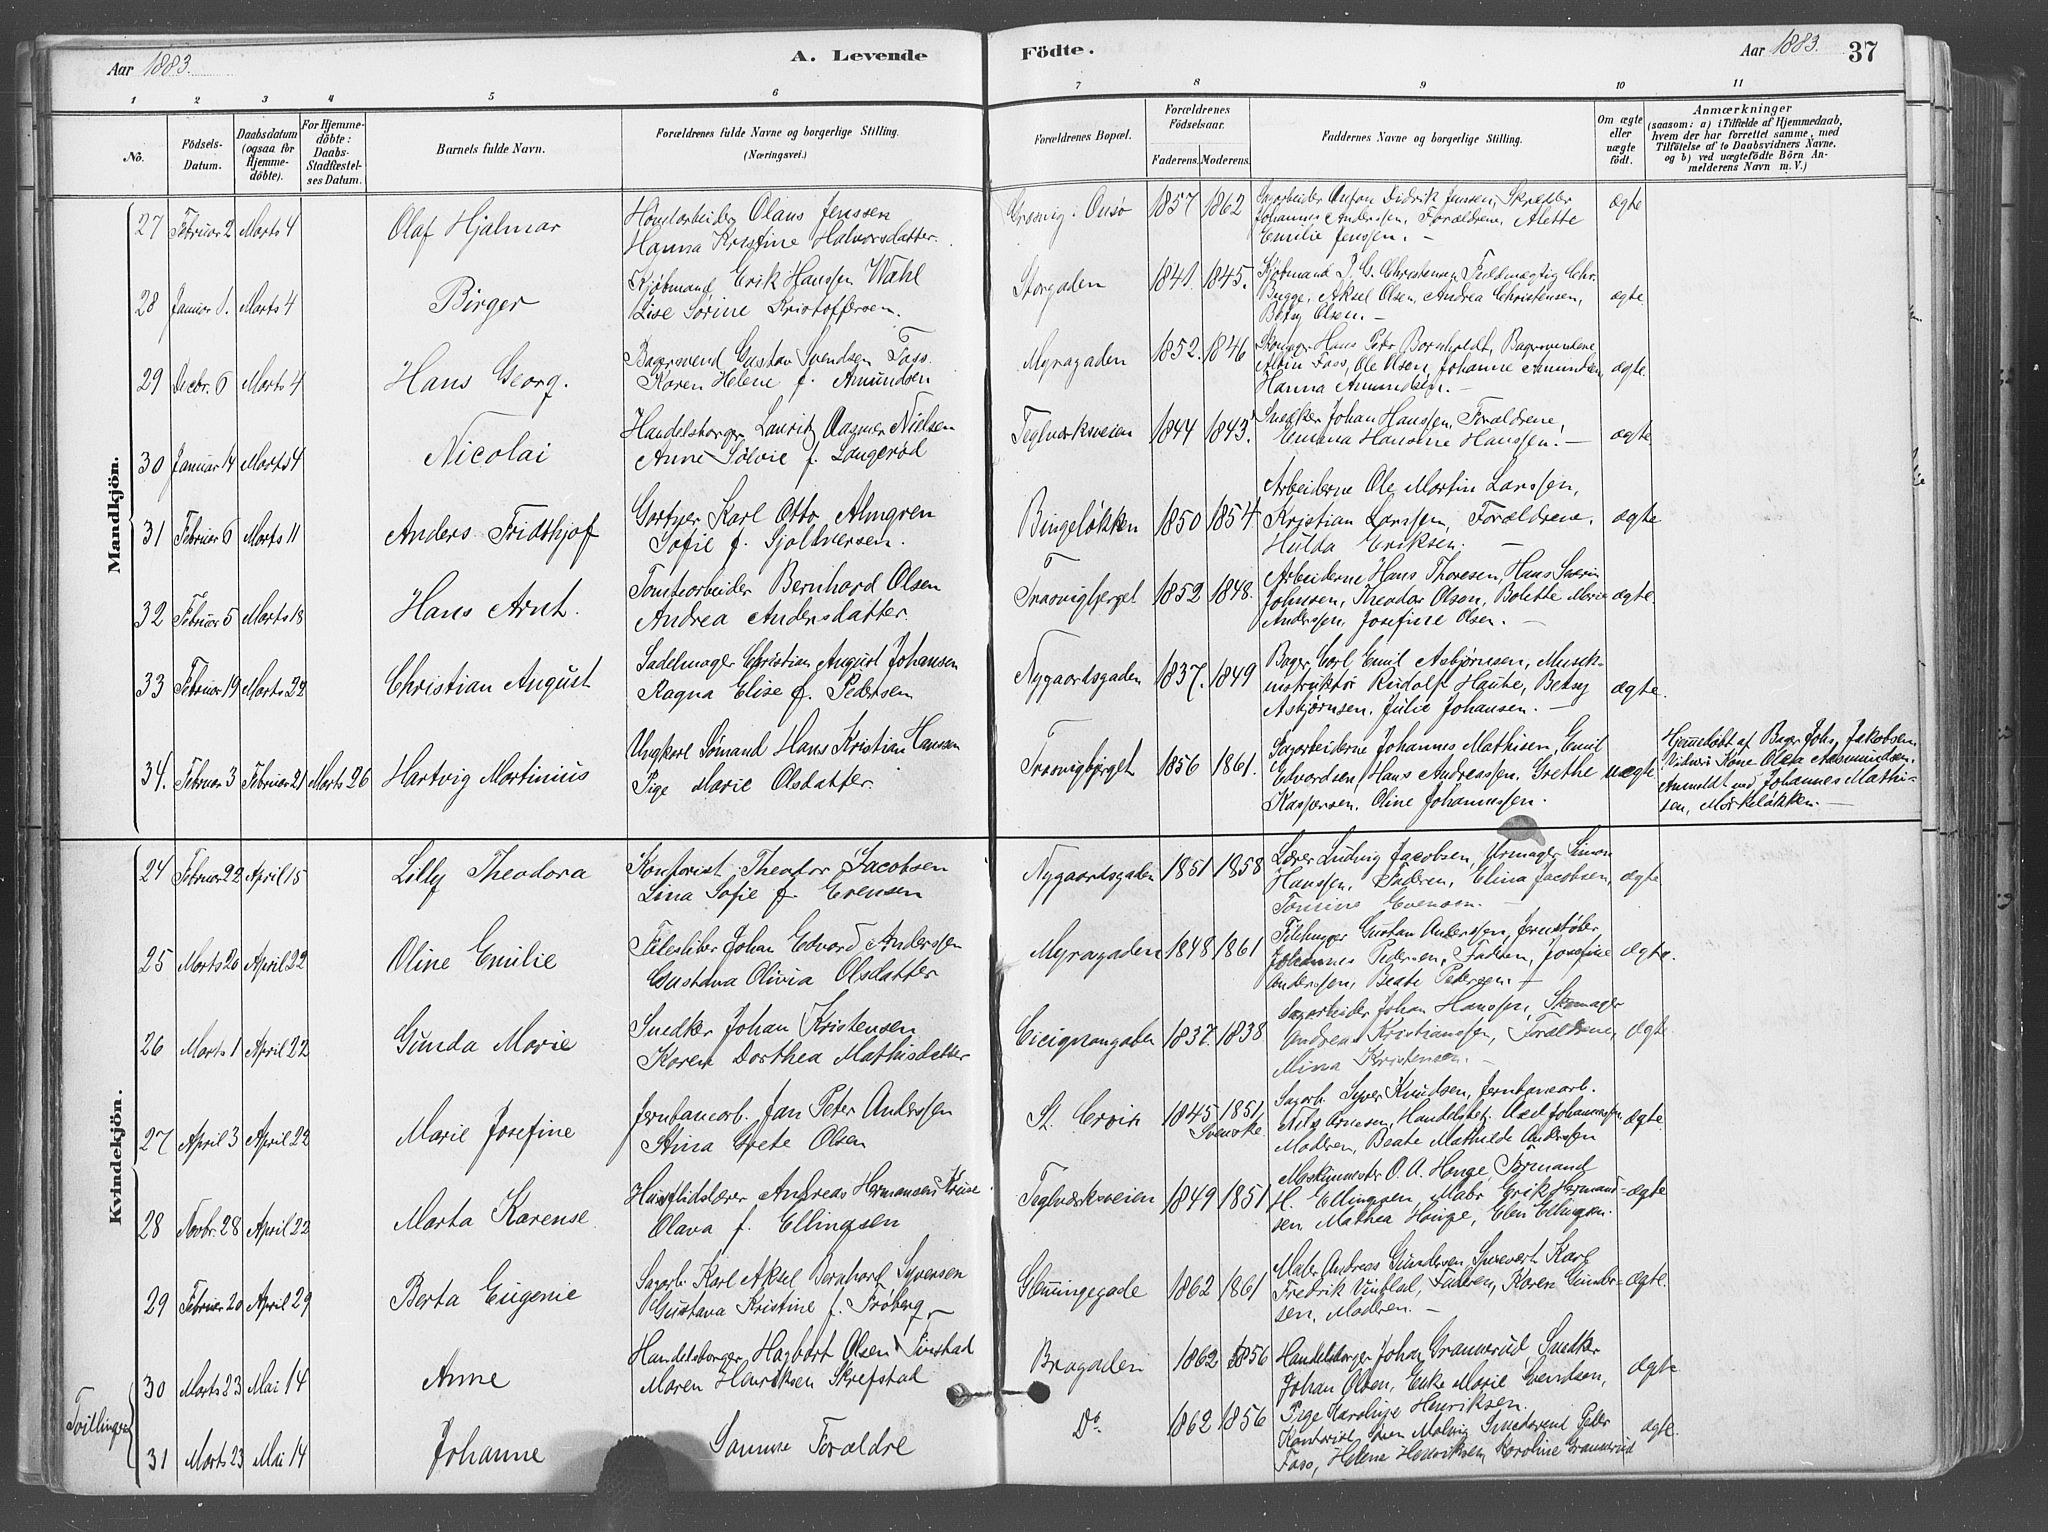 Aar 1883.
A. Levende
Födte.
Aar 1883.
37
1 2 3 4 5 6 7 8 9 10 11
No.
Födsels-
Datum.
Daabsdatum
(ogsaa for
Hjemme-
döbte).
For Hjemme-
döbte:
Daabs-
Stadfæstel-
ses Datum.
Barnets fulde Navn.
Forældrenes fulde Navne og borgerlige Stilling.
(Næringsvei.)
Forældrenes Bopæl.
Forældrenes
Födselsaar.
Faderens. Moderens.
Faddernes Navne og borgerlige Stilling.
Om ægte
eller
uægte
födt.
Anmærkninger
(saasom: a) i Tilfælde af Hjemmedaab,
hvem der har forrettet samme, med
Tilföielse af to Daabsvidners Navne,
og b) ved uægtefödte Börn An-
melderens Navn m. V.)
Mandkjön.
27 Februar 2 Marts 4 Olaf Hjalmar
Olaus Jenssen
Hanna Kristine Halvorsdatter.
Onsø 1857 1862
Sagarbeider Anton Didrik Jensen, Skrædder
Johannes Anderssen, Forældrene, Alette
Emilie Jenssen. –
ægte
28 Januar 1. Marts 4 Birger
Kjøbmand Erik Hanssen Wahl
Lise Sørine Kristoffersen.
Storgaden 1841. 1845.
Kjøbmand P. G. Christensen, Fuldmægtig Chr.
Bugge, Aksel Olsen, Andrea Christensen,
Betsy Olsen. –
ægte
29 Decbr. 6 Marts 4 Hans Georg.
Bagersvend Gustav Svendsen Foss.
Karen Helene f. Amundsen
Myragaden 1852. 1846
Skomager Hans Petr Bornholdt, Bagersvendene
Albin Foss, Ole Olsen, Johanne Amundsen,
Hanna Amundsen. –
ægte.
30 Januar 14 Marts 4 Nicolai
Handelsborger Lauritz Nielsen
Anne Sølvie f. Langerød
Teglværksveien 1844 1843.
Snedker Johan Hanssen, Forældrene,
Emma Hansine Hanssen. –
ægte
31 Februar 6 Marts 11 Anders Fridthjof
Karl Otto Almgren
Sofie f. Sjoldversen.
Bingeløkken 1850 1854
Arbeiderne Ole Martin Larssen,
Kristian Larssen, Forældrene,
Hulda Eriksen. –
ægte
32 Februar 5 Marts 18 Hans Arnt.
Tomtearbeider Bernhard Olsen
Andrea Andersdatter.
Traavigbjerget 1852 1848.
Arbeiderne Hans Thoresen, Hans Severin
Johnsen, Theodor Olsen, Bolette Marie
Anderssen, Josefine Olsen. –
ægte.
33 Februar 19 Marts 22 Christian August
Sadelmager Christian August Johansen
Ragna Elise f. Pedersen
Nygaardsgaden 1837. 1849
Bager Carl Emil Asbjørnsen, Musik-
instruktør Rudolf Haube, Betsy
Asbjørnsen, Julie Johansen. –
ægte.
34. Februar 3 Februar 21 Marts 26 Hartvig Martinius
Ungkarl Sømand Hans Kristian Hanssen
Pige Marie Olsdatter.
Traavigbjerget 1856 1861.
Sagarbeiderne Johannes Mathisen, Emil
Edvardsen, Hans Andreassen, Grethe
Kaspersen, Oline Johannessen.
uægte
Hjemmedøbt af Bager Johs. Jakobsen.
Vidner: Kone Olea Aasmundsen.
Anmeldt ved Johannes Mathi-
sen, Mørkeløkken. –
Kvindekjön.
24 Februar 22 April 15 Lilly Theodora
Kontorist Theodor Jacobsen
Lina Sofie f. Evensen
Nygaardsgaden 1851 1858
Lærer Ludvig Jacobsen, Urmager Simon
Hanssen, Faderen, Elina Jacobsen,
Tomine Evensen. –
ægte
25 Marts 20 April 22 Oline Emilie
Filesliber Johan Edvard Anderssen
Gustava Olivia Olsdatter
Myragaden 1848 1861
Filehugger Gustav Anderssen, Jernstøber
Johannes Pedersen, Faderen, Josefine
Anderssen, Beate Petersen –
ægte.
26 Marts 1 April 22 Gunda Marie
Snedker Johan Kristensen
Karen Dorthea Mathisdatter
Cicignongaden 1837. 1838
Sagarbeider Johan Hanssen, Skomager
Andreas Kristianssen, Forældrene,
Mina Kristensen. –
ægte
27 April 3 April 22 Marie Josefine
Jernbanearb. Jan Peter Anderssen
Stina Grete Olsen
St. Croix 1845 1851
Svenske.
Sagarb. Syver Knudsen, Jernbanearb.
Nils Arnesen, Handelsbetj. Axel Johannessen,
Moderen, Beate Mathilde Anderssen
ægte.
28 Novbr. 28 April 22 Marta Karense.
Husflidslærer Andreas Hermansen Kruse
Olava f. Ellingsen
Teglværksveien 1849 1851
Maskinmester O. A. Hauge, Formand
H. Ellingsen, Maler Erik Hermand-
sen, Mathea Hauge, Elen Ellingsen.
ægte
29 Februar 20 April 29 Berta Eugenie
Sagarb. Karl Aksel Bernhard Syversen
Gustava Kristine f. Frøberg –
Glemmingegade 1862 1861
Maler Andreas Gundersen, Karl
Fredrik Vinblad, Faderen, Karen Gunder-
sen, Moderen. –
ægte.
Tvillinger
30 Marts 23 Mai 14 Anne
Handelsborger Hagbart Olsen
Maren Henriksen Skrefstad
Brogaden 1862 1856
Handelsborger Johan Granerud, Snedker
Johan Olsen, Enke Marie Svendsen,
Pige Karoline Henriksen.
ægte
31 Marts 23 Mai 14 Johanne
Samme Forældre
Do. 1862 1856
Kontorist Malvig, Smedsvend Peter
Foss, Helene Henriksen, Karoline Granerud
ægte.